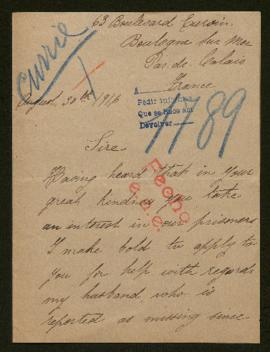 Currie
63 Boulevard
Boulogne sur Mer
Pas de Calais
France
A
Pedir informe
Que se hace aquí
Devolver
August 30th 1916
1789
Sire
Having heard that in Your
great kindness You take
an interest in our prisoners
I make bold to apply to
You for help with regards
my husband who is
reported as missing since